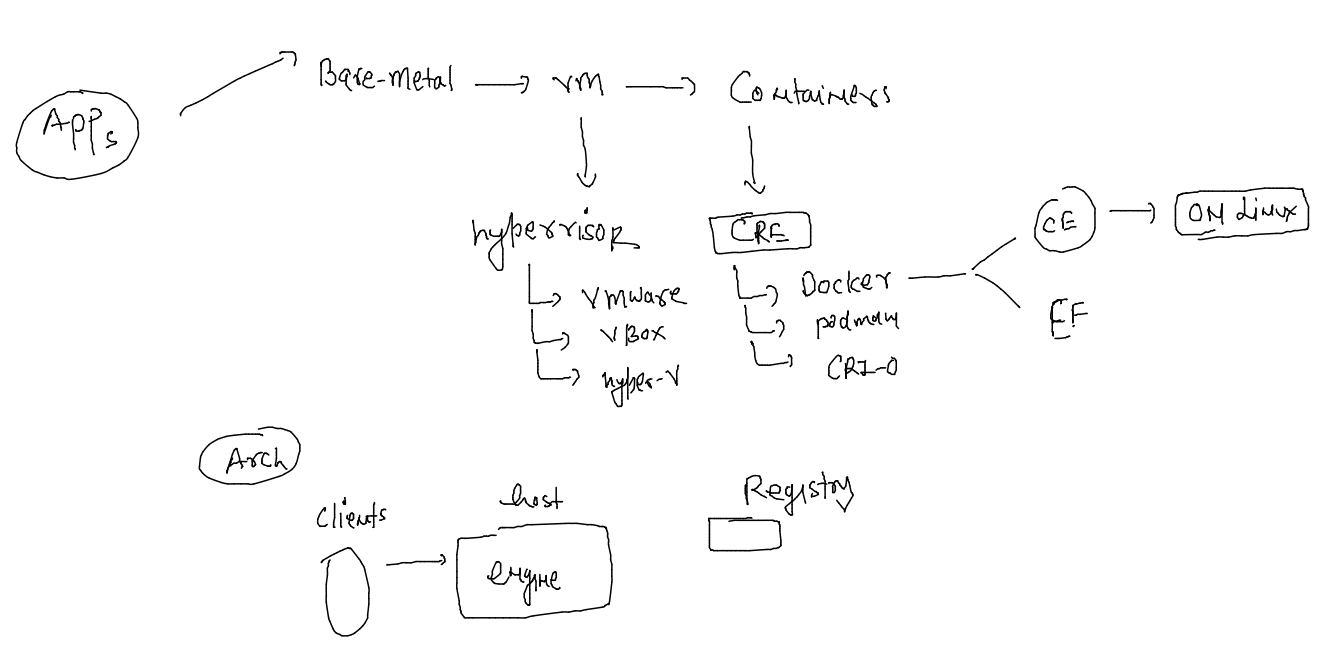 Apps
Bare-metal
VM
Containers
hypervisor
VMware
VBox
hyper-V
CRE
Docker
podman
CRI-O
CE
ON Linux
EF
Arch
clients
host
engine
Registry